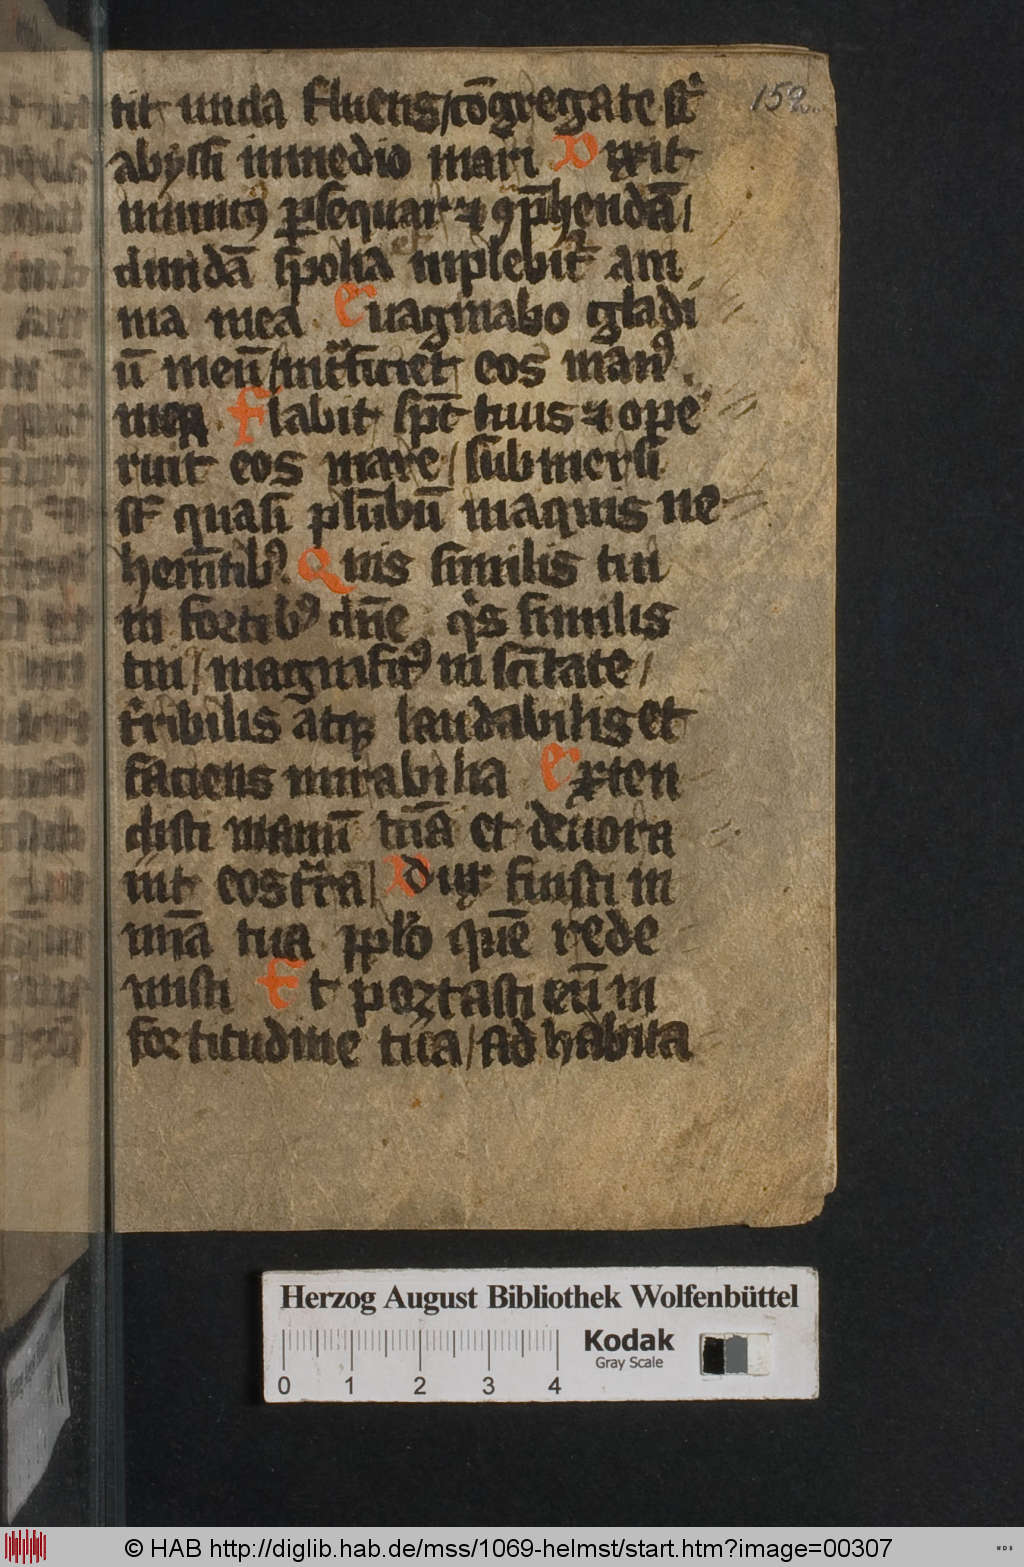 tit unda fluens / cōgregate sť
abyssi inmedio mari Dixit
inimicꝰ ꝑsequar ⁊ ꝯp̄hendā /
diuidā spolia inplebiť ani
ma mea Euaginabo gladi
ū meū / int̕ficiet eos manꝰ
mea Flabit sp̄c tuus ⁊ ope
ruit eos mare / submersi
sť quasi plūbū inaquis ue
hem̄tibꝰ Quis similis tui
in fortibꝰ dn̄e qͥs similis
tui / magnificꝰ in sc̄itate /
t̕ribilis atqꝫ laudabilis et
faciens mirabilia Exten
disti manū tuā et deuora
uit eos t̕ra / Dux fuisti in
mīa tua ppl̕o quē rede
misti Et portasti eū in
fortitudine tua / ad habita
159
Herzog August Bibliothek Wolfenbüttel
Kodak
Gray Scale
0 1 2 3 4
© HAB http://diglib.hab.de/mss/1069-helmst/start.htm?image=00307